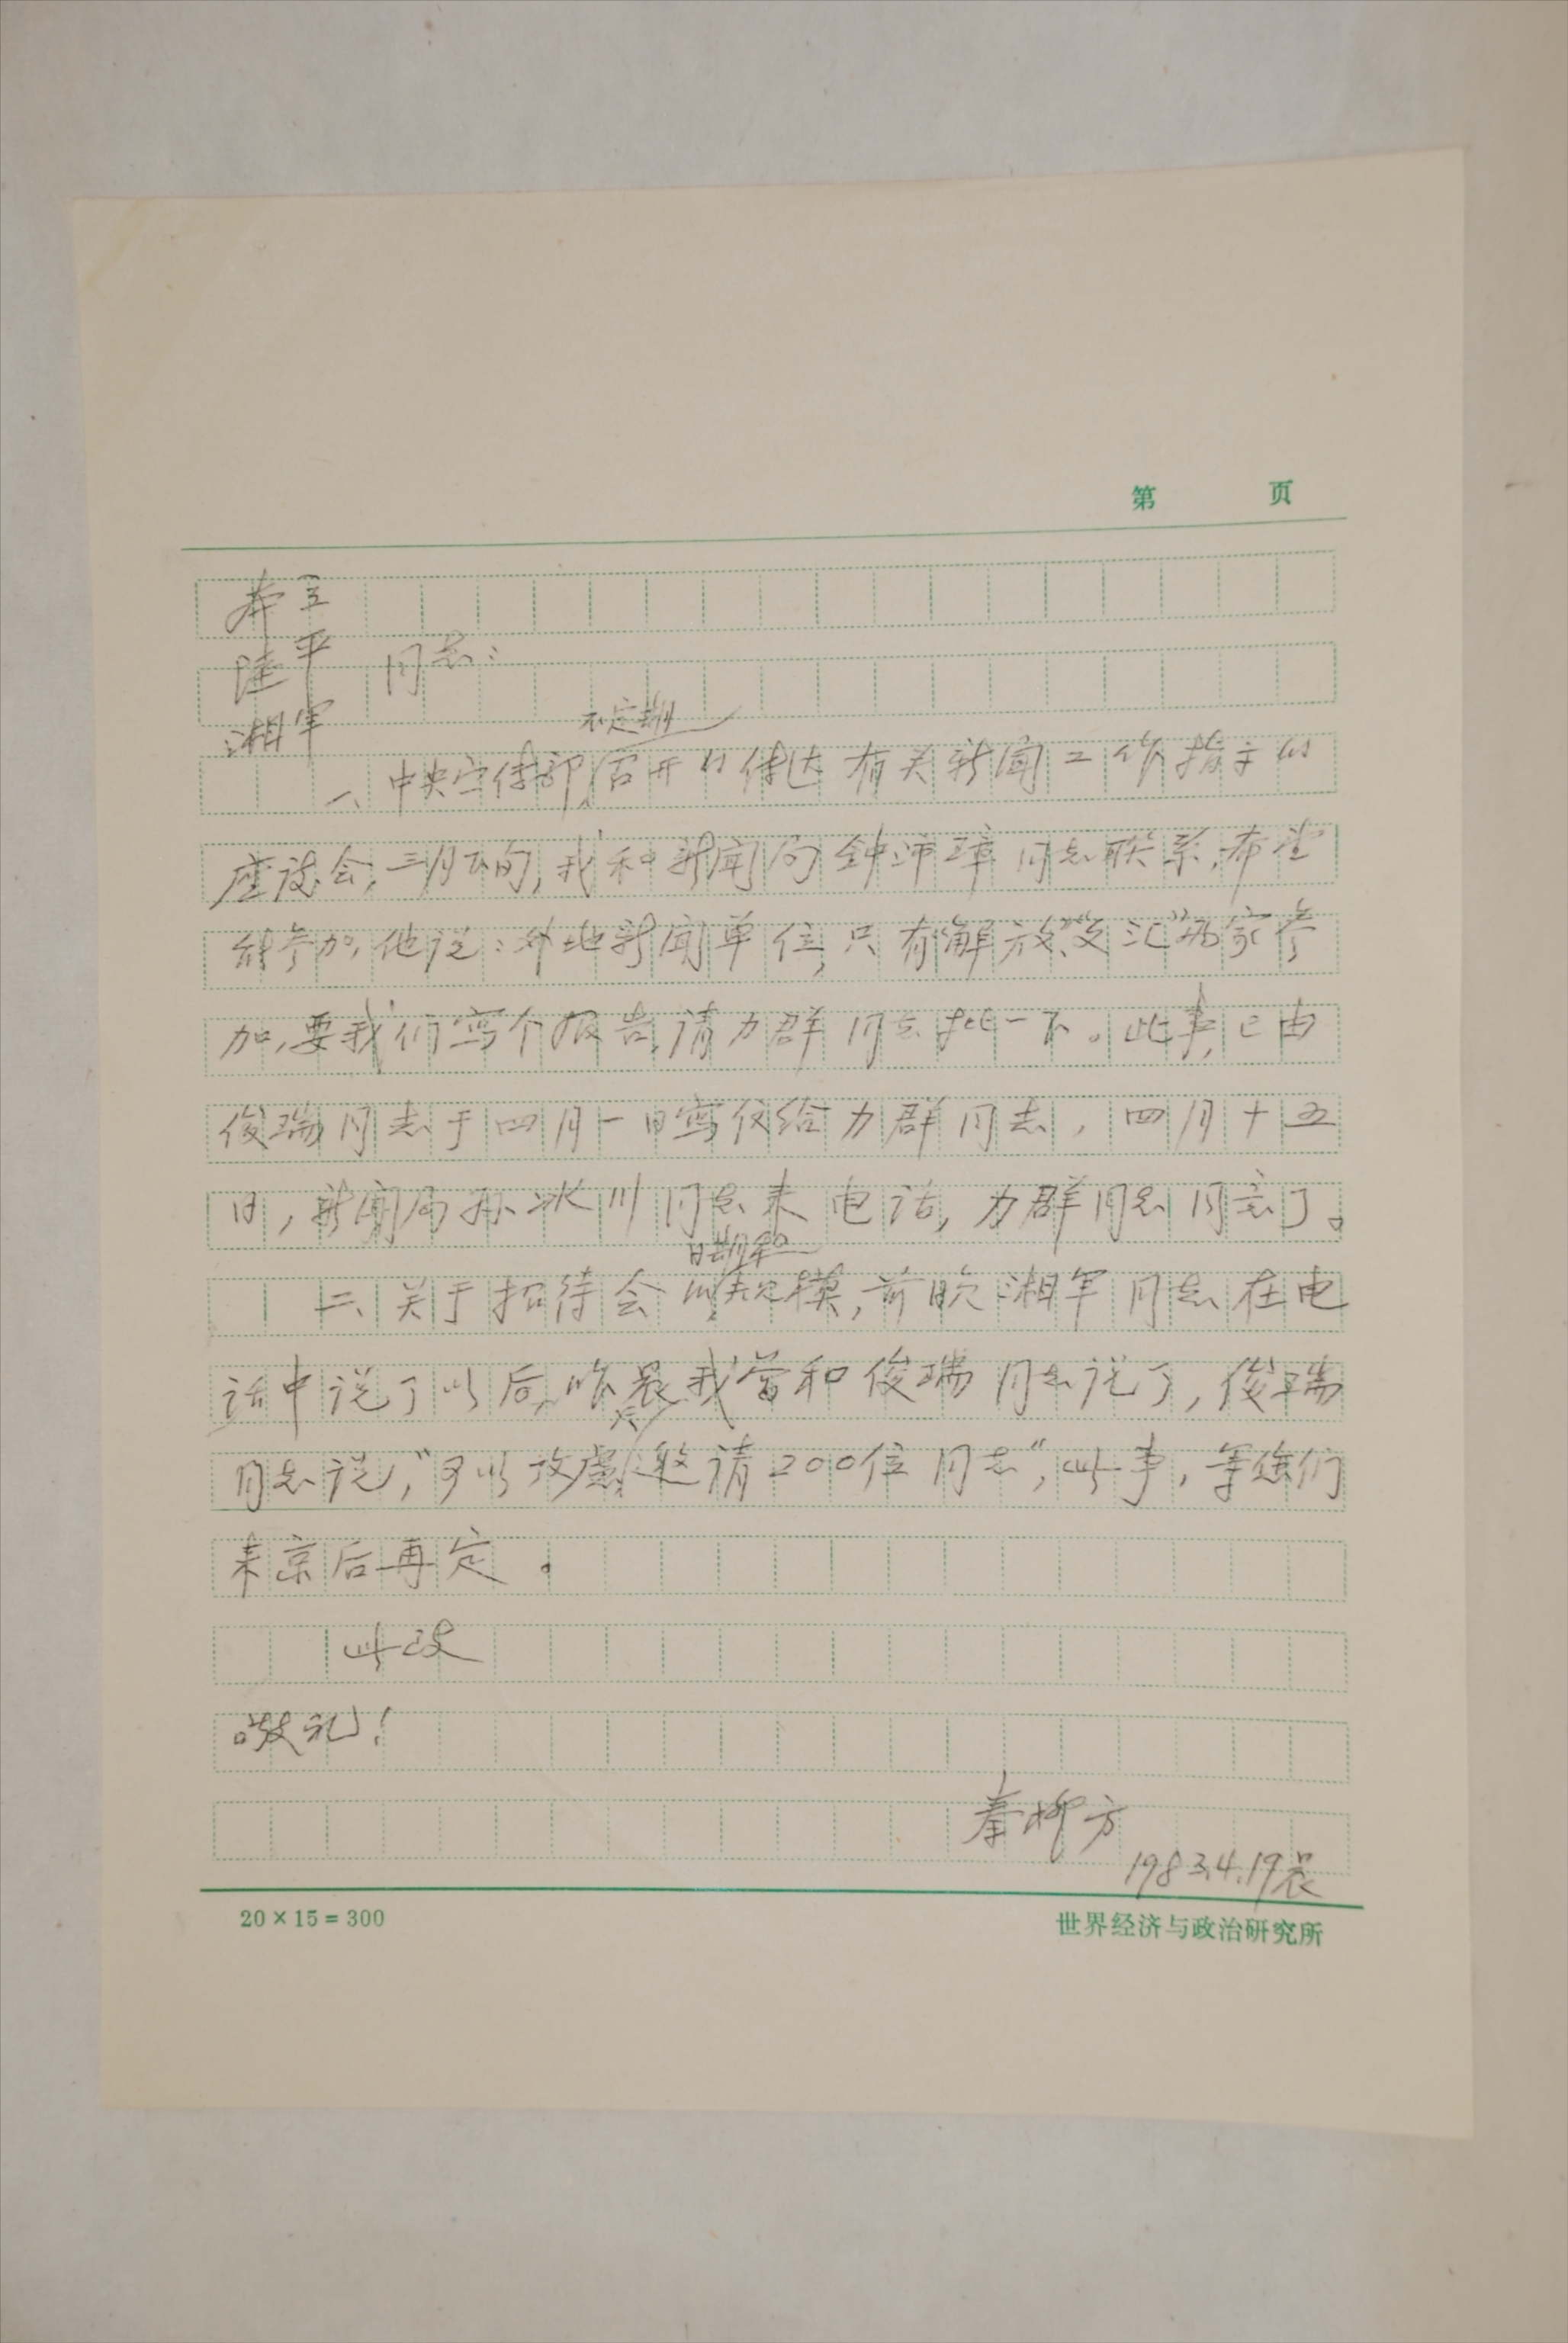 第 页
寿三
陆平 同志：
湘军
不定期
一、中央宣传部召开的传达有关新闻工作指示的
座谈会，三月下旬，我和新闻局钟沛璋同志联系，希望
能参加，他说：外地新闻单位，只有“解放”“文汇”两家参
加，要我们写个报告，请力群同志批一下。此事，已由
俊瑞同志于四月一日写信给力群同志，四月十五
日，新闻局孙冰川同志来电话，力群同志同意了。
日期和
二、关于招待会的规模，前晚湘军同志在电
话中说了以后，昨晨我曾和俊瑞同志说了，俊瑞
同志说，“可以考虑邀请200位同志”，此事，等您们
来京后再定。
此致
敬礼！
秦柳方
1983.4.19晨
20×15=300 世界经济与政治研究所